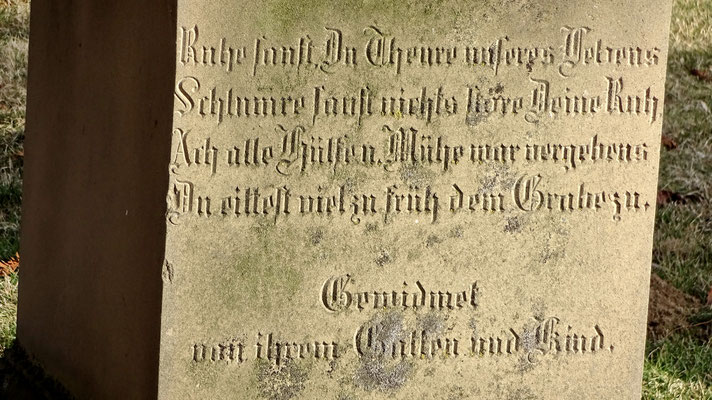 Ruhe sanft, Du Theure unseres Lebens
Schlumre sanft nichts störe Deine Ruh
Ach alle Hülfe u. Mühe war vergebens
Du eiltest viel zu früh dem Grabe zu.
Gewidmet
von ihrem Gatten und Kind.